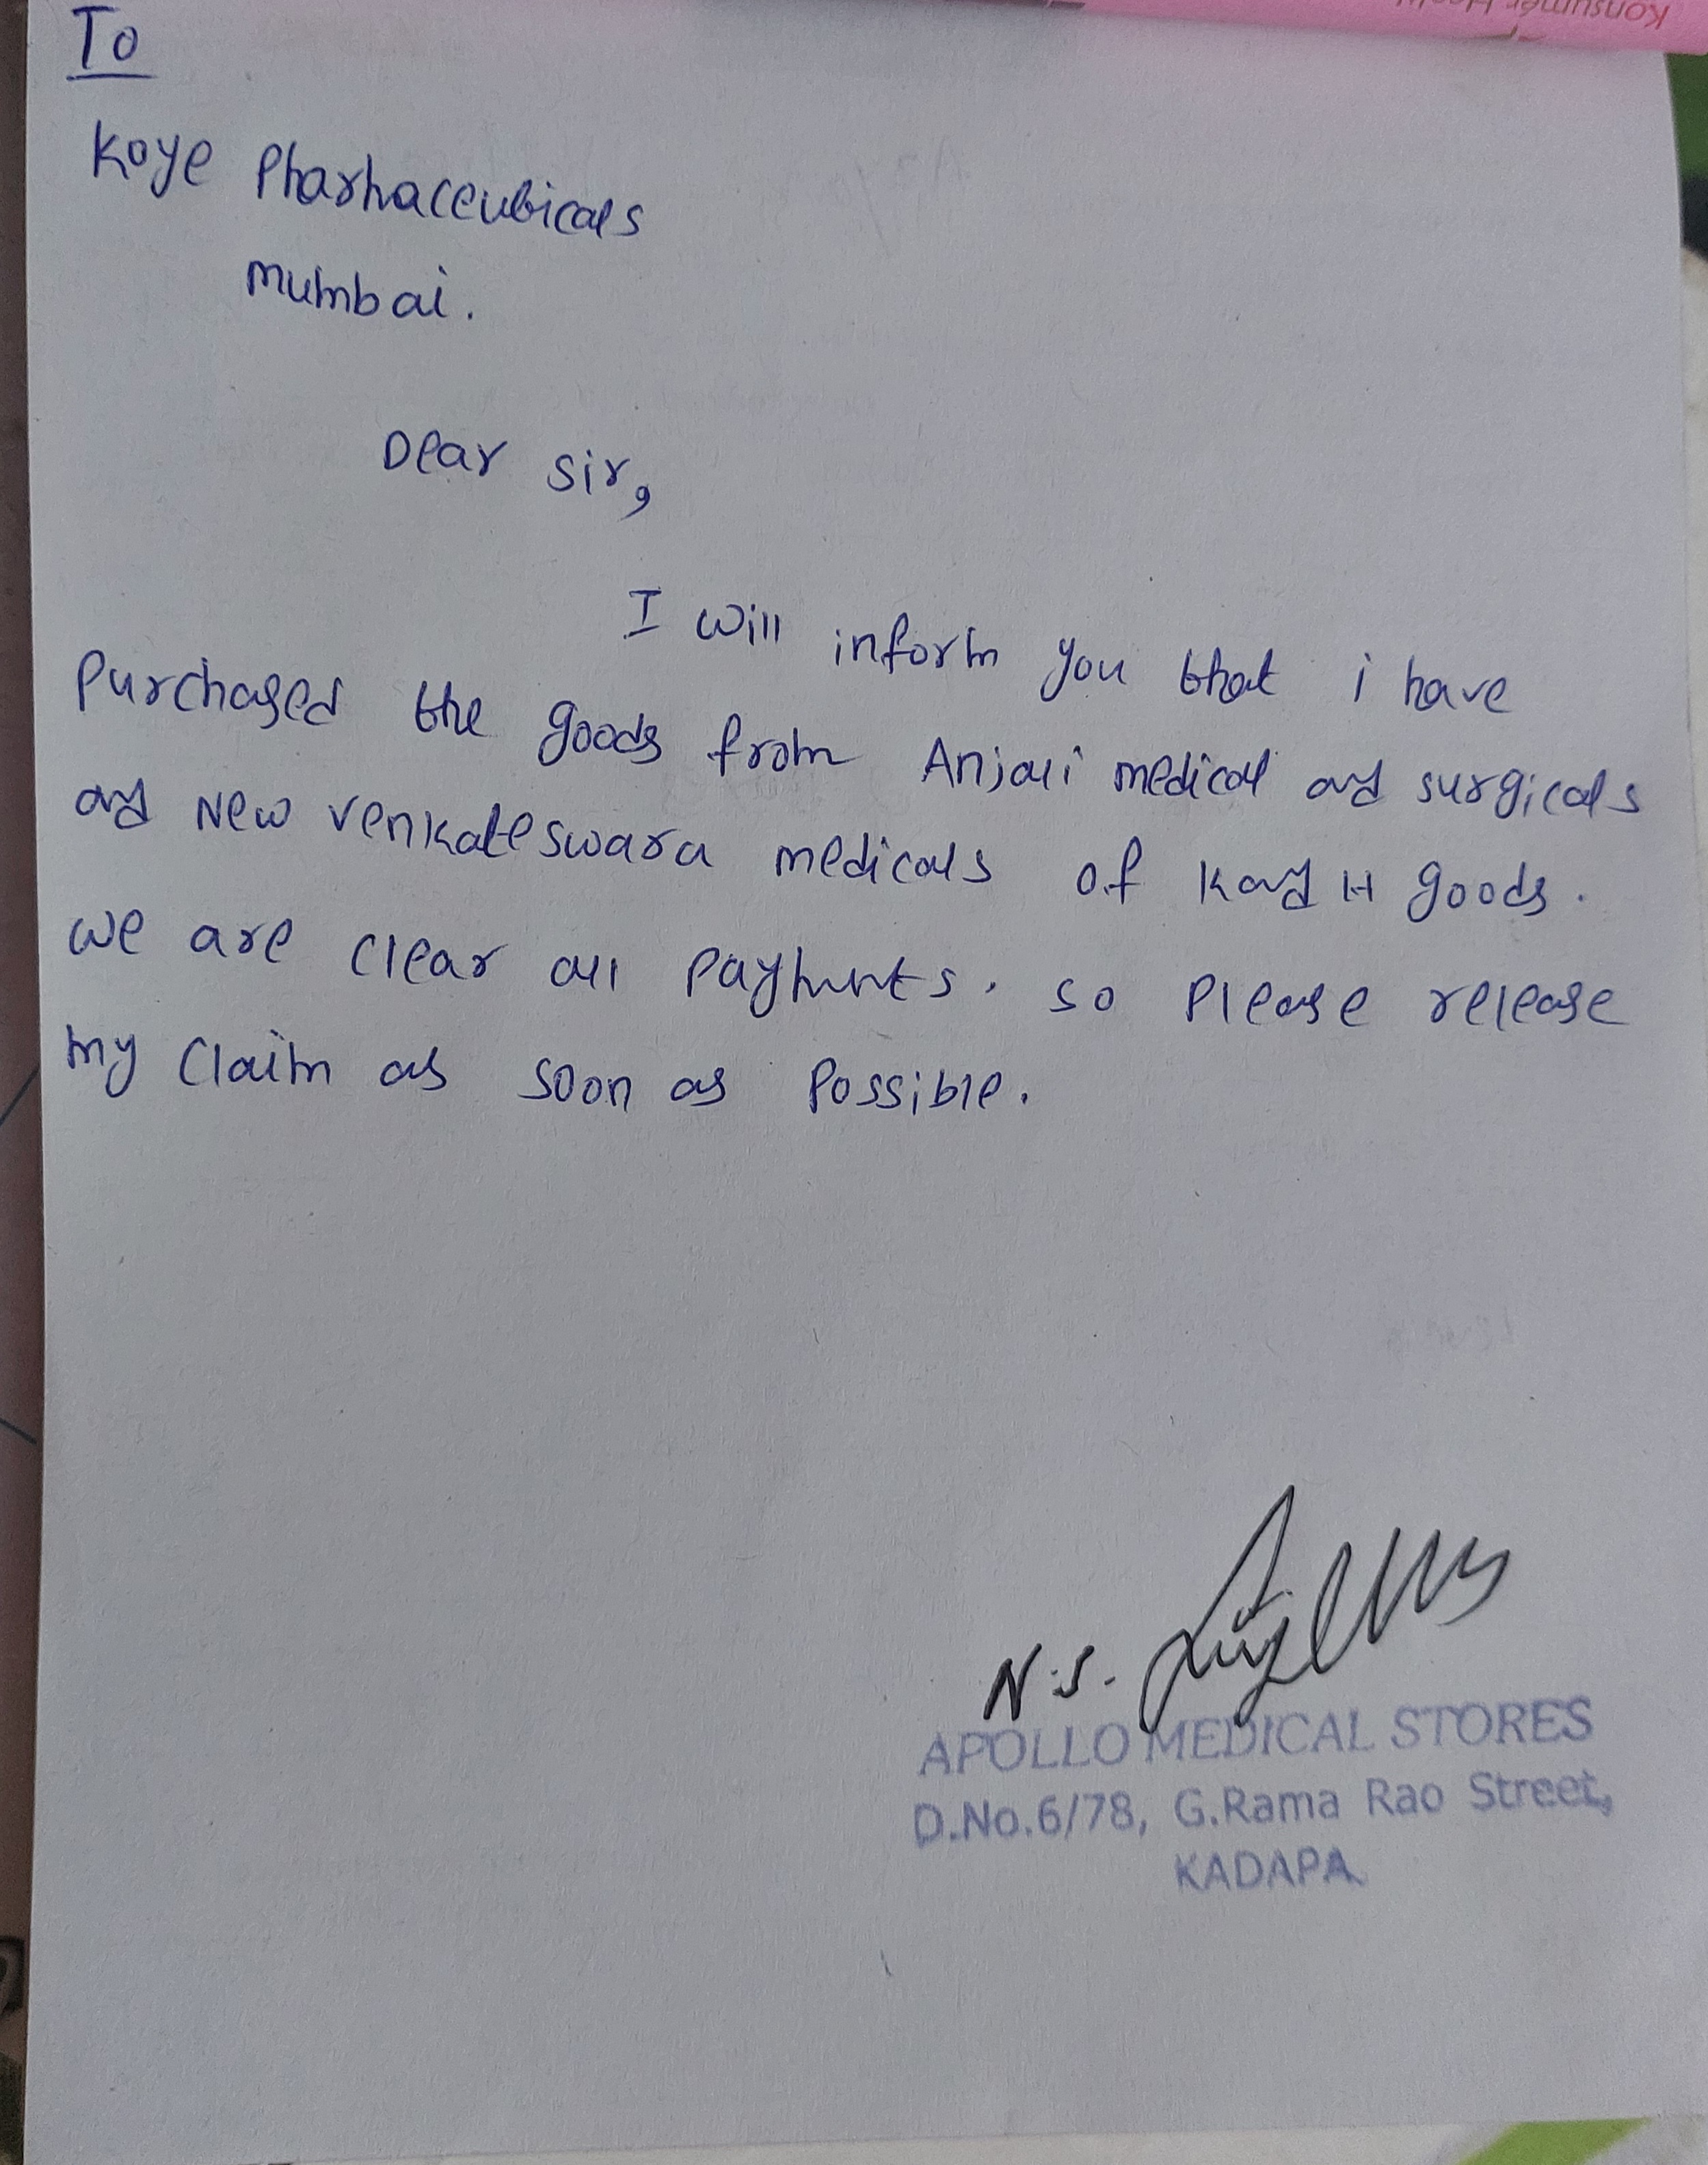 Konsumer
To
Koye Pharmaceuticals
Mumbai.
Dear Sir,
I will inform you that i have
Purchased the goods from Anjali medical and surgicals
and New Venkateswara medicals of K and H goods.
we are clear all payments. so Please release
my claim as soon as Possible.
N.S.
APOLLO MEDICAL STORES
D.No.6/78, G.Rama Rao Street,
KADAPA